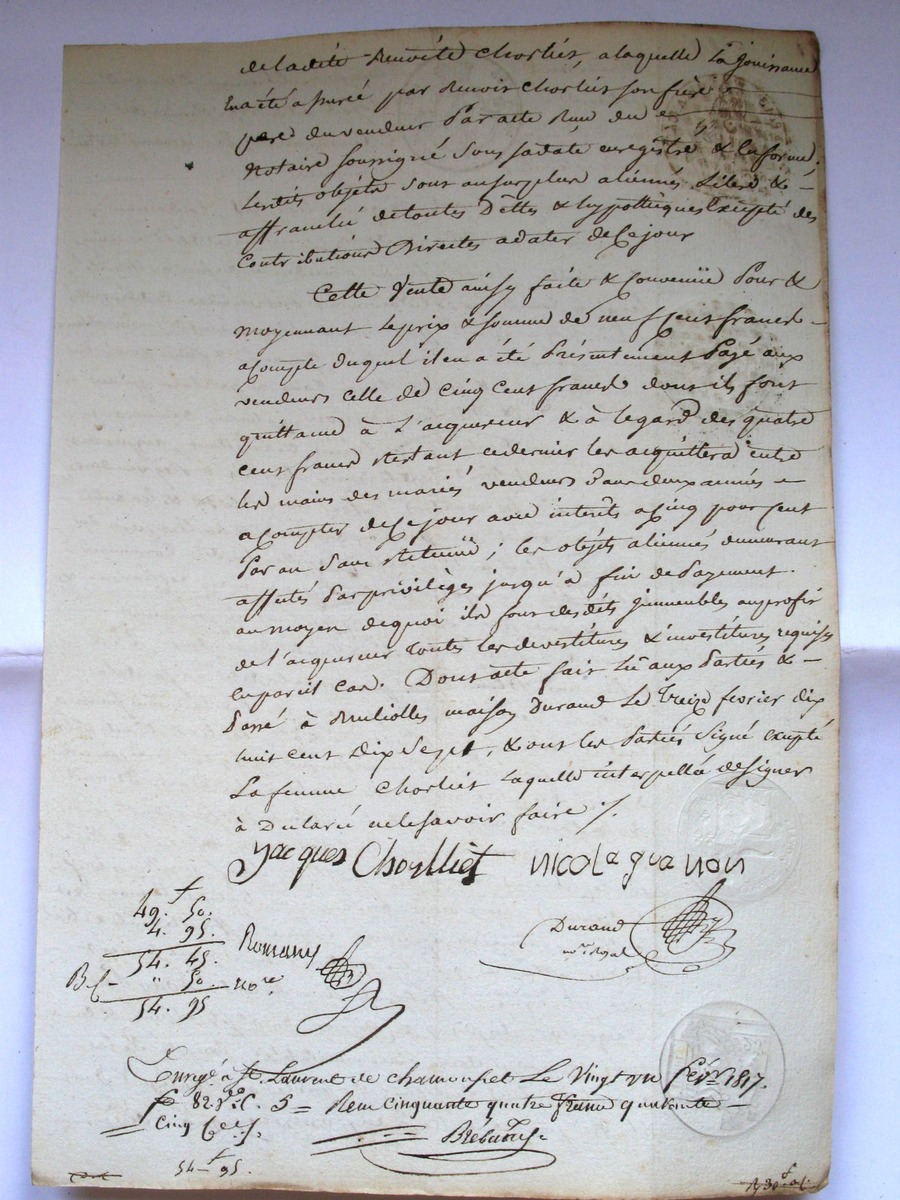 de ladite Benoite Chorliet, a laquelle la Jouissance
en a été assurée par Benoit Chorliet son frère
pere du vendeur Par acte Recu du
Notaire soussigné sous sa date enregistré & en forme.
Lesdits objets sont au surplus aliennés Libre &
affranchi de toutes Dettes & hypothèques Excepté des
Contributions Directes a dater de Ce jour
Cette Vente ainsy faite & Convenüe Pour &
moyennant Le prix & somme de neuf Cent francs
a Compte duquel il en a été Présentement Payé aux
vendeurs Celle de Cinq Cent francs dont ils font
quittance à L'acquereur & à l'egard des quatre
Cent francs restant ce dernier les acquittera entre
les mains des mariés vendeurs Dans deux années
a Compter de Ce jour avec interêts a Cinq pour Cent
Par an sans retenüe ; les objets aliennés demeurant
affectés Par privilèges jusqu'à fin de Payement.
au moyen de quoi ils font desdits immeubles au profit
de l'acquereur toutes les devestitures & investitures requises
en pareil Cas. Dont acte fait Lû aux Parties &
Passé à maison Durand Le Treize fevrier dix
huit Cent Dix Sept, & ont les Parties Signé excepté
La femme Chorliet Laquelle interpellée de Signer
à Déclaré ne le savoir faire /.
Jacques Chorlliet nicola guanon
49. f 50.
4. 95.
54. 45.
" 50
54. 95
Romany
no.re
Durand
n.re Royal
Enregé. à St. Laurent de Chamousset Le Vingt un févr. 1817.
f° 82. V.° C. 5 = Reçu Cinquante quatre francs quarante
Cinq C.es /.
54 f 95.